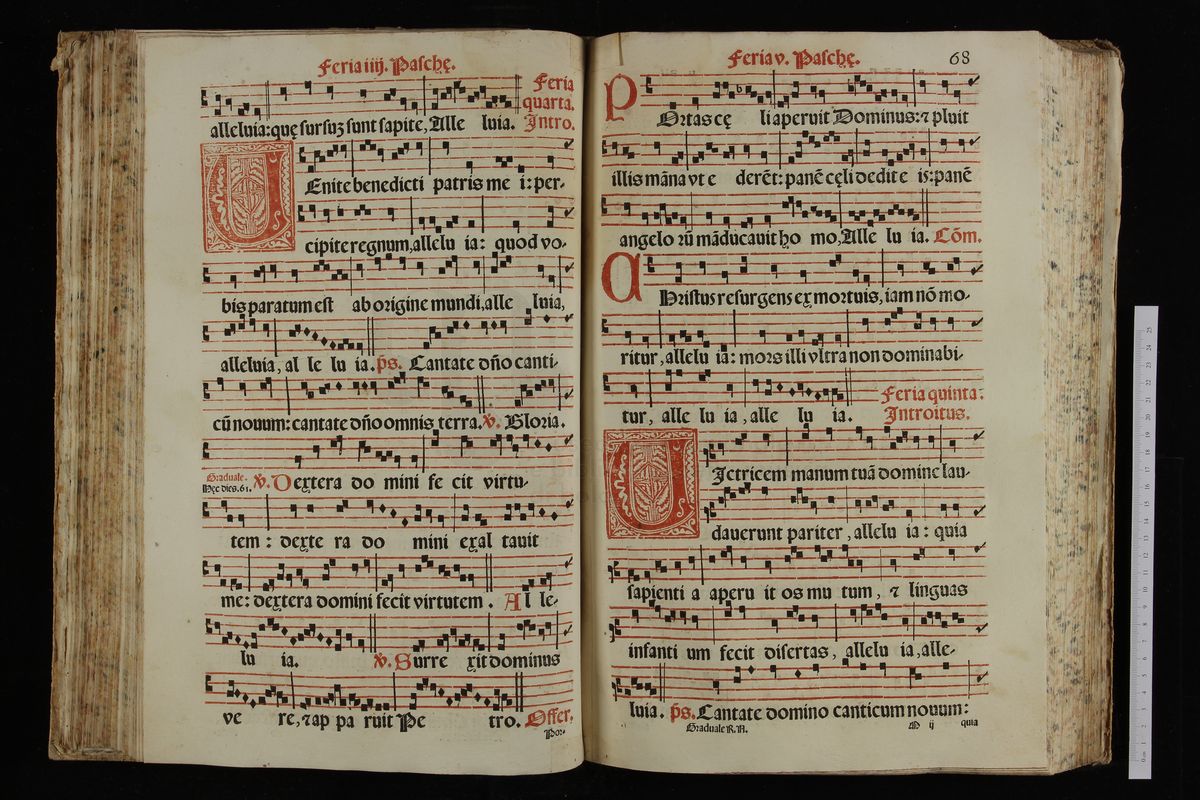 Feria iiij. Paschę.
Feria
quarta.
alleluia: quę sursuʒ sunt sapite, Alle luia. Intro.
UEnite benedicti patris me i: per-
cipite regnum, allelu ia: quod vo-
bis paratum est ab origine mundi, alle luia,
alleluia, al le lu ia. p̄s. Cantate dño canti-
cū nouum: cantate dño omnis terra. ℣. Gloria.
Graduale.
Hęc dies. 61. ℣. Dextera do mini fe cit virtu-
tem: dexte ra do mini exal tauit
me: dextera domini fecit virtutem. Al le-
lu ia. ℣. Surre xit dominus
ve re, ⁊ ap pa ruit Pe tro. Offer.
Por-
Feria v. Paschę. 68
POrtas cę li aperuit Dominus: ⁊ pluit
illis māna vt e derēt: panē cęli dedit e is: panē
angelo rū māducauit ho mo, Alle lu ia. Cōm.
CHristus resurgens ex mortuis, iam nō mo-
ritur, allelu ia: mors illi vltra non dominabi-
Feria quinta:
tur, alle lu ia, alle lu ia. Introitus.
UIctricem manum tuā domine lau-
dauerunt pariter, allelu ia: quia
sapienti a aperu it os mu tum, ⁊ linguas
infanti um fecit disertas, allelu ia, alle-
luia. p̄s. Cantate domino canticum nouum:
Graduale R. A. M ij quia
0 cm 1 2 3 4 5 6 7 8 9 10 11 12 13 14 15 16 17 18 19 20 21 22 23 24 25